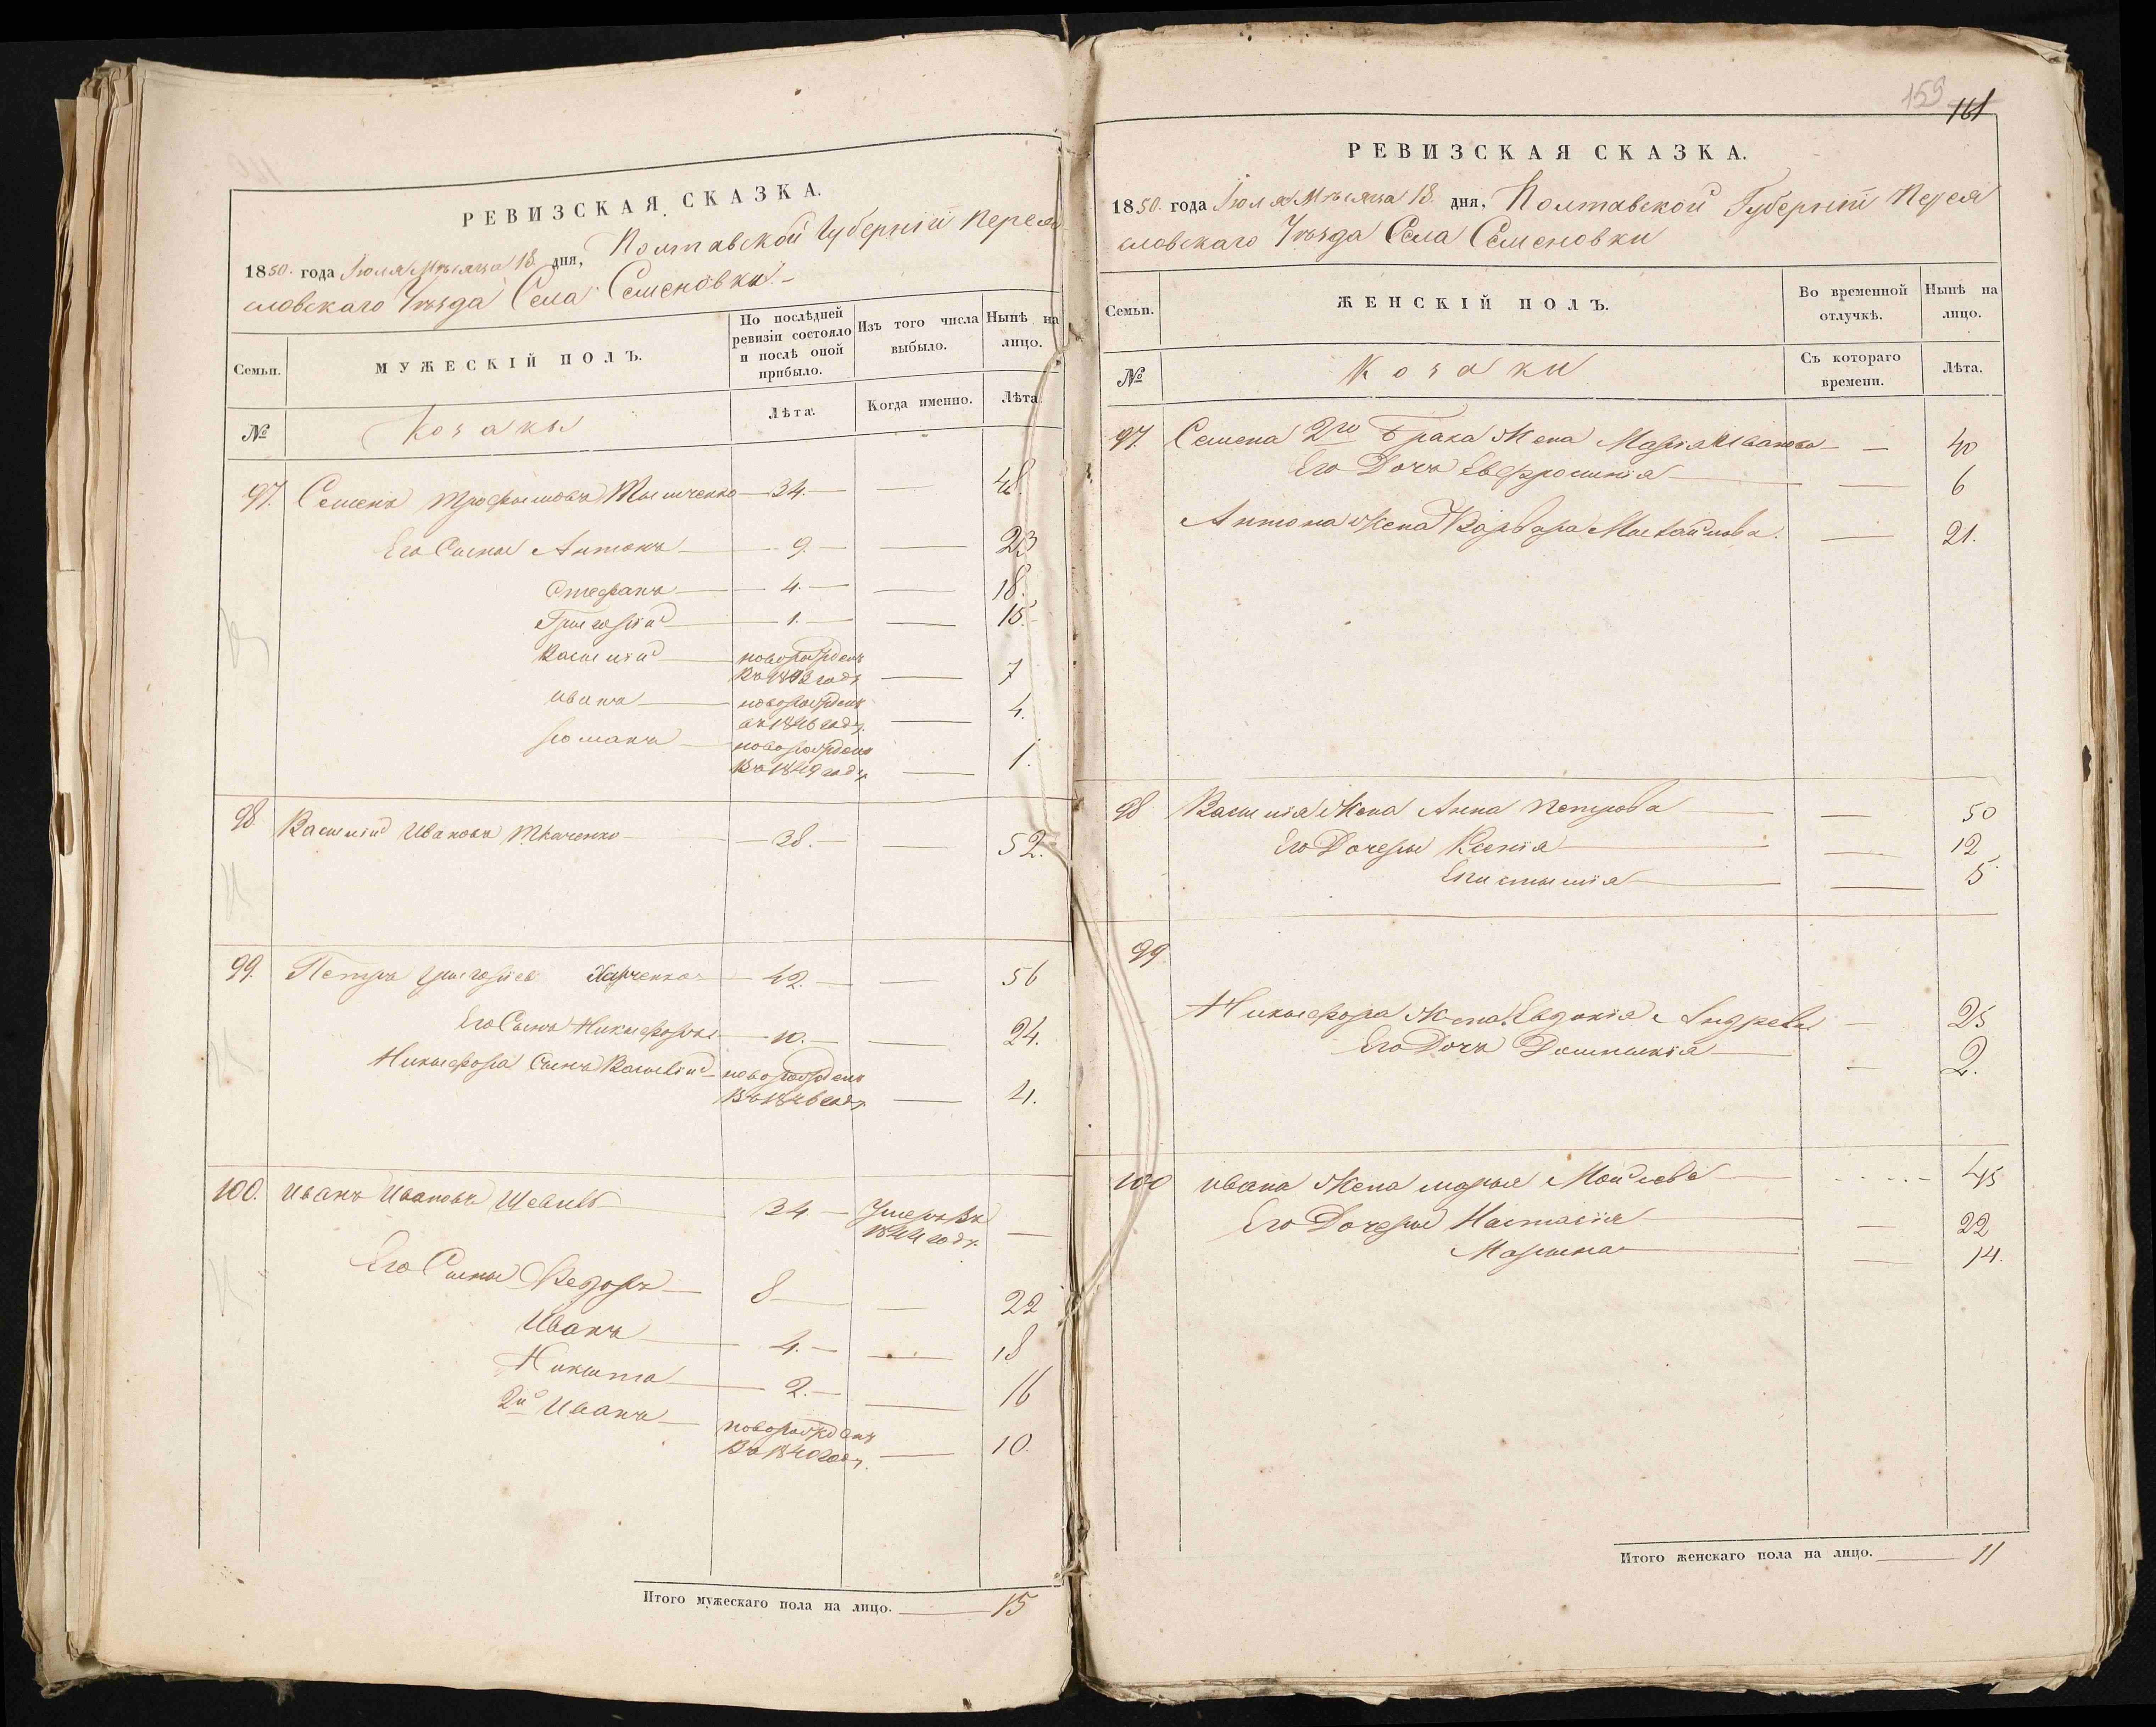 РЕВИЗСКАЯ СКАЗКА.
1850. года Іюля Мѣсяца 18. дня, Полтавской Губерніи Перея
словскаго Уѣзда Села Семеновки
Семьи. МУЖЕСКІЙ ПОЛЪ. По послѣдней ревизіи состояло и послѣ оной прибыло. Изъ того числа выбыло. Нынѣ на лицо.
№ Козаки Лѣта. Когда именно. Лѣта.
97. Семенъ Трофимовъ 34. — — 48.
Его Сыны Антонъ 9. — — 23
Стефанъ — 4. — — 18.
Григорій — 1. — — 15.
Василій — новорожденъ — 7
въ 1843 годѣ
Иванъ — новорожденъ — 4.
въ 1846 годѣ
Романъ — новорожденъ — 1.
въ 1849 годѣ
98. Василій Ивановъ Ткаченко — 38. — — 52.
99. Петръ Григорьевъ Харченко — 42. — — 56
Его Сынъ Никифоръ — 10. — — 24.
Никифора Сынъ Василій — новорожденъ
въ 1846 годѣ — 4.
100. Иванъ Ивановъ 34. — Умеръ въ
1844 годѣ —
Его Сыны Федоръ — 8 — — 22
Иванъ — 4. — — 18
Никита — 2. — — 16
2й Иванъ — новорожденъ
въ 1840 годѣ — 10.
Итого мужескаго пола на лицо. — 15
159
161
РЕВИЗСКАЯ СКАЗКА.
1850. года Іюля Мѣсяца 18. дня, Полтавской Губерніи Перея
словскаго Уѣзда Села Семеновки
Семьи. ЖЕНСКІЙ ПОЛЪ. Во временной отлучкѣ. Нынѣ на лицо.
№ Козаки Съ котораго времени. Лѣта.
97. Семена 2го Брака Жена Марія Иванова — — 40
Его Дочь Евфросинія — — 6
Антона Жена Варвара Михайлова. — 21.
98 Василія Жена Анна Петрова — — 50
Его Дочери Ксенія — — 12
Епистимія — — 5
99
Никифора Жена Евдокія Андреева — 25
Его Дочь Домникія — — 2.
100 Ивана Жена Марья — 45
Его Дочери Настасія — — 22
Марина — — 14.
Итого женскаго пола на лицо. — 11